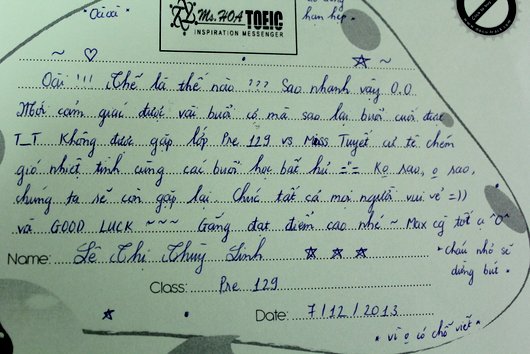 * Oài ài *
hạn hẹp.
Ms. HOA TOEIC
INSPIRATION MESSENGER
~ ♡ ☆ ~
Oài !!! Thế là thế nào ??? Sao nhanh vậy O.O
Mới cảm giác được vài buổi có mà sao lại buổi cuối được
T_T Không được gặp lớp Pre 129 vs Miss Tuyết cứ tê chém
gió nhiệt tình cùng các buổi học bất hủ =“= Ko sao, o sao,
chúng ta sẽ còn gặp lại. Chúc tất cả mọi người vui vẻ =))
và GOOD LUCK ~~~ Gắng đạt điểm cao nhé ~ Max cg tốt ạ ^0^
Name: Lê Thị Thùy Linh ☆ ☆ ☆
* cháu nhỏ sẽ
dừng bút *
Class: Pre 129
Date: 7/12/2013
* vì o có chỗ viết *